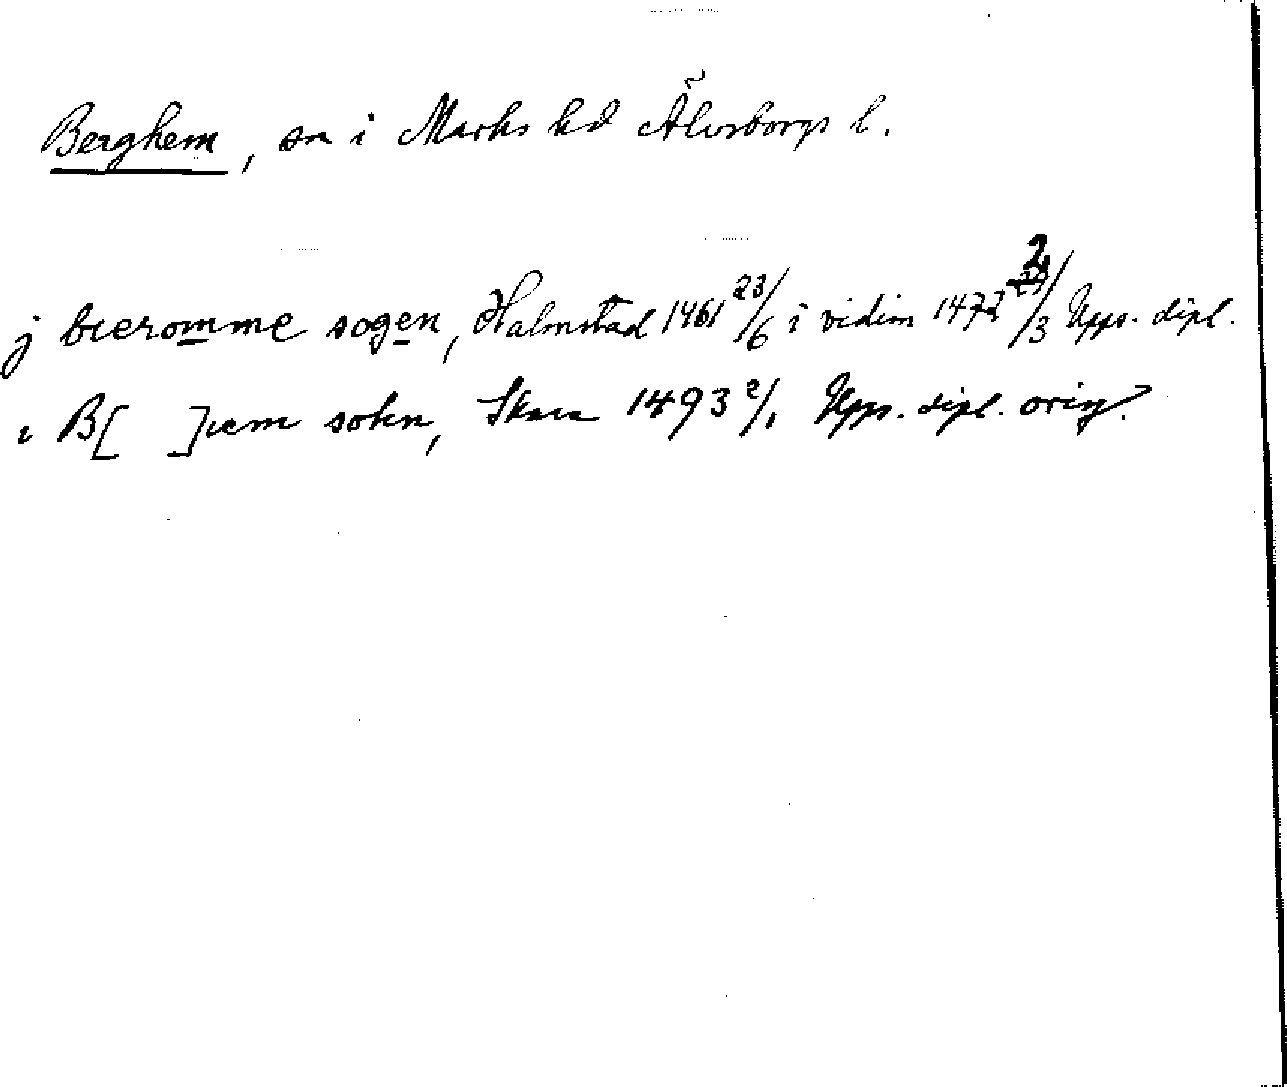 Berghem, sn i Marks hd Älvsborgs l.
j bieromme sogen, Halmstad 1461 23/6 i vidim 1472 2/3 Upps. dipl.
i B[ ]iem sokn, Skara 1493 2/1 Upps. dipl. orig.